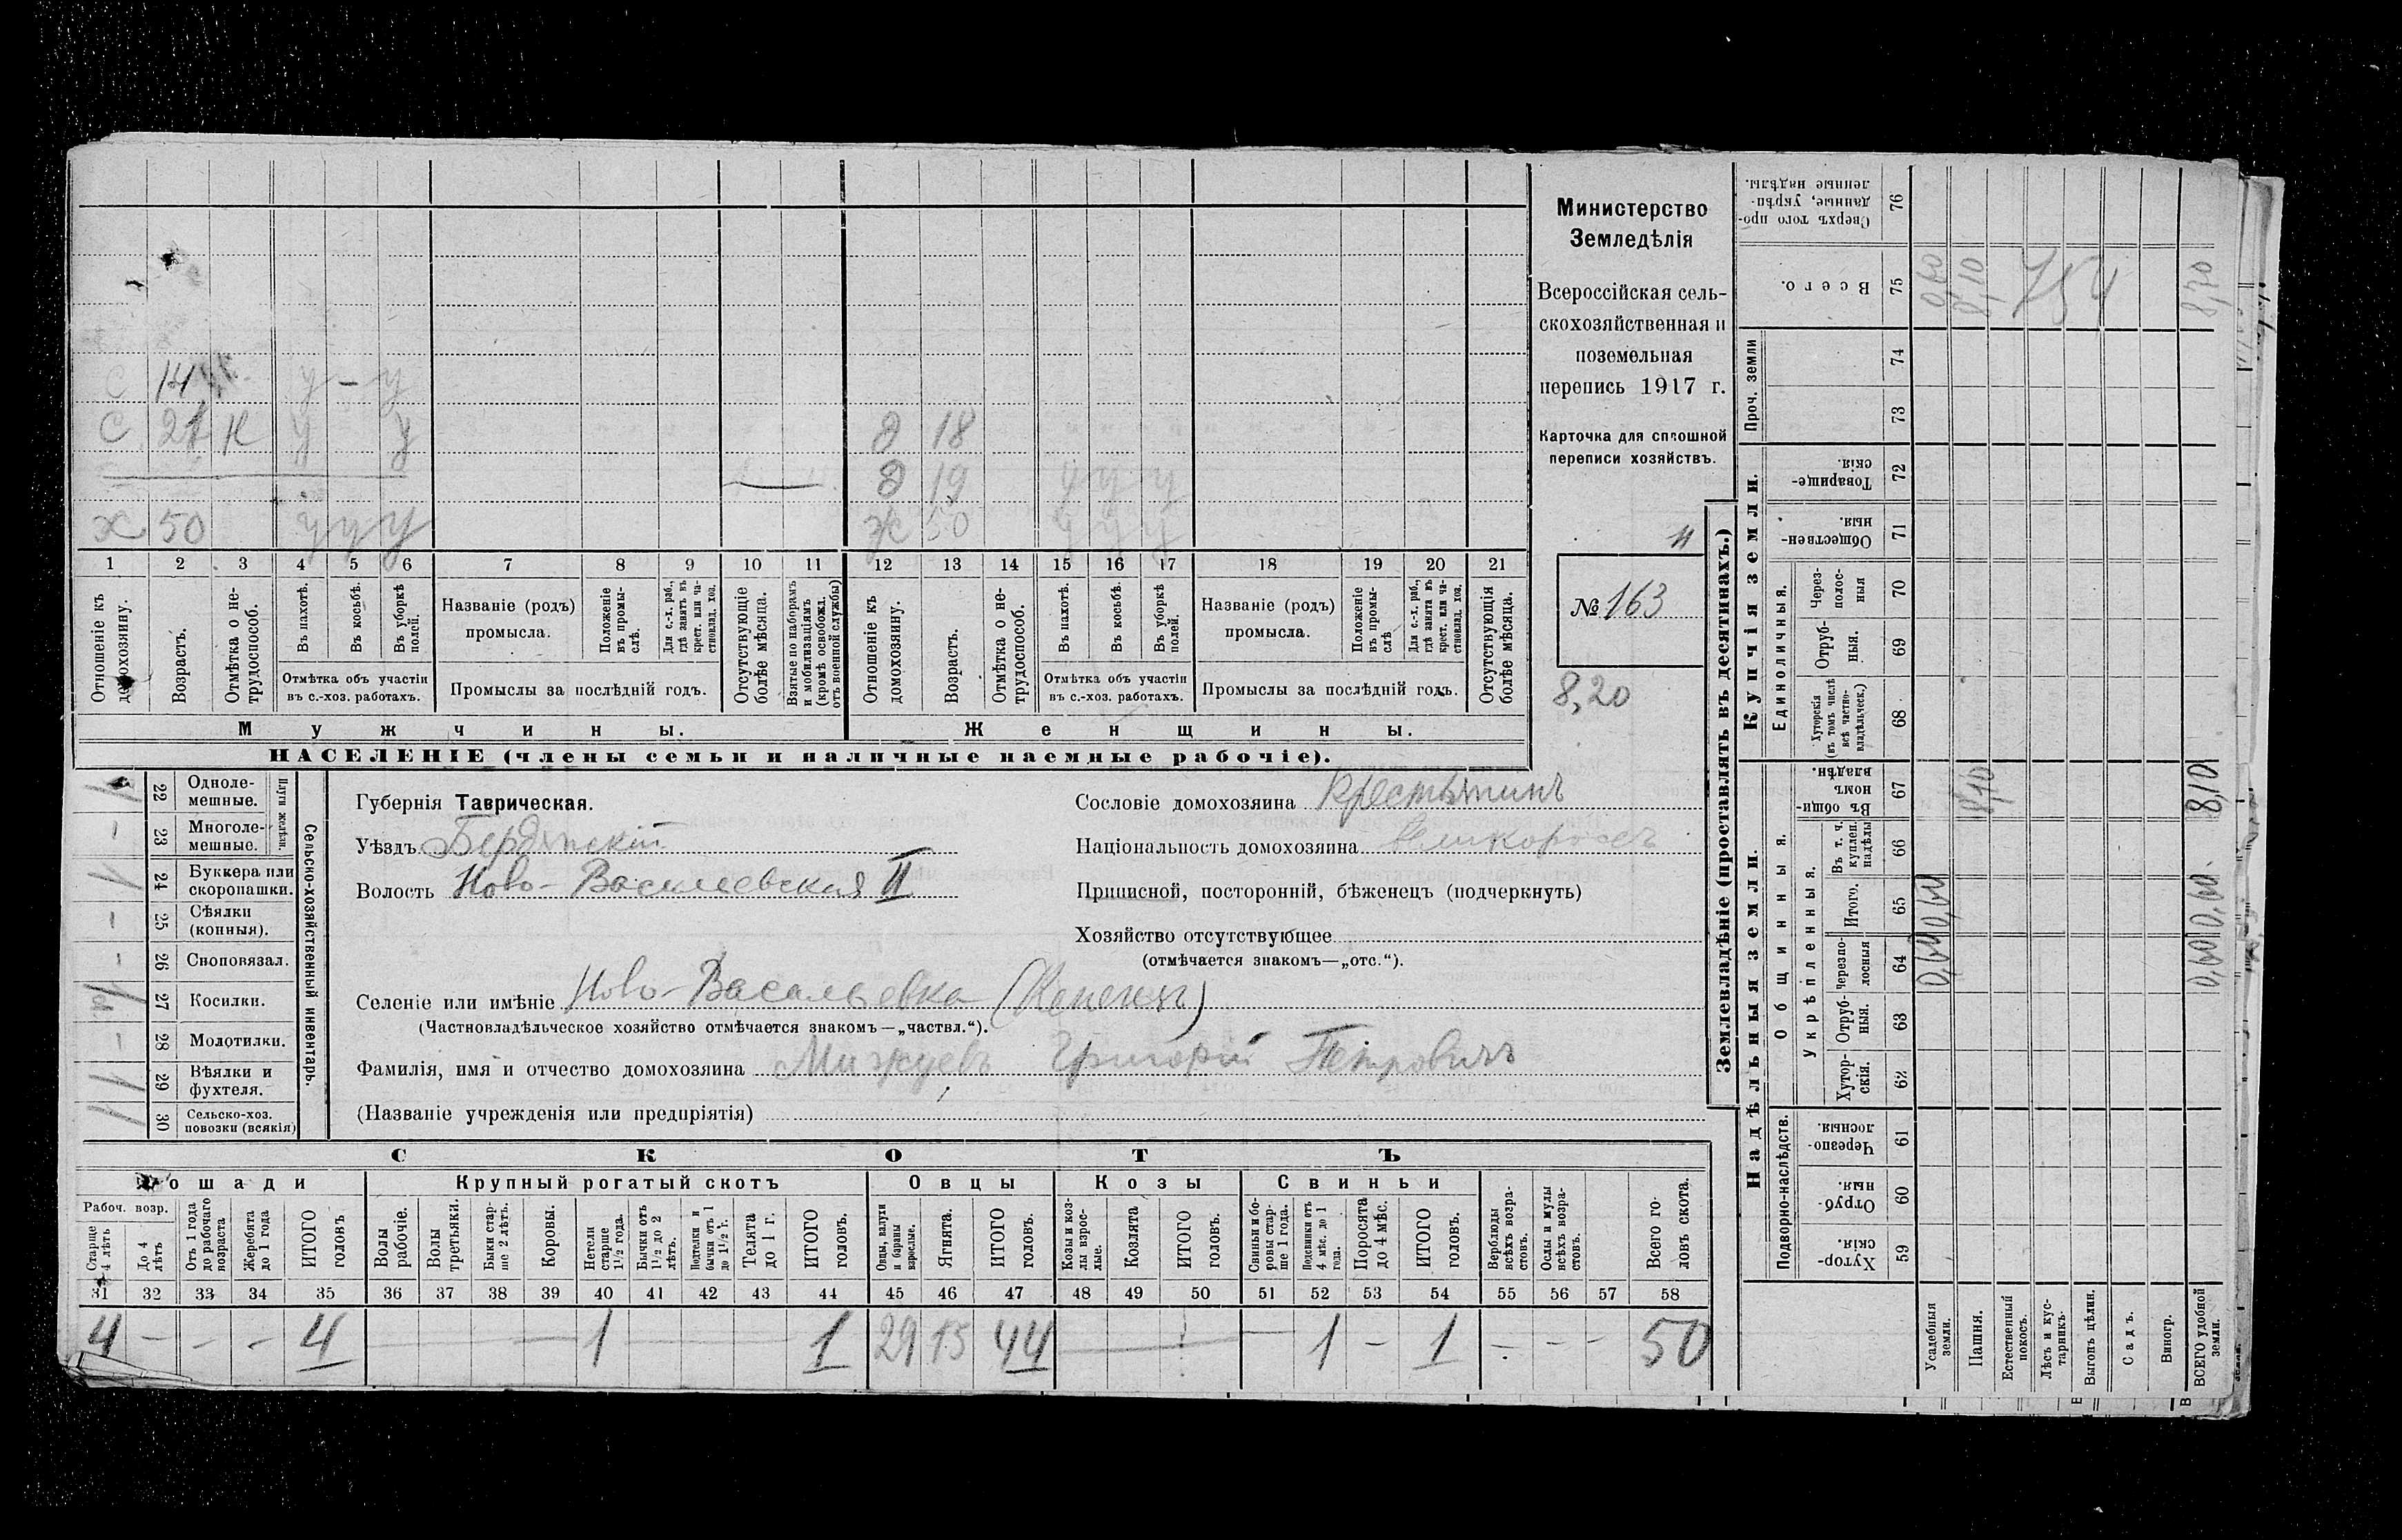 С 14 у – у
С 21 К у у
д 18
д 19 у у у
х 50 у у у
ж 50 у у у
1 2 3 4 5 6 7 8 9 10 11 12 13 14 15 16 17 18 19 20 21
Отношеніе къ домохозяину.
Возрастъ.
Отмѣтка о нетрудоспособ.
Въ пахотѣ.
Въ косьбѣ.
Въ уборкѣ полей.
Отмѣтка объ участіи
въ с.-хоз. работахъ.
Названіе (родъ)
промысла.
Положеніе въ промыслѣ.
Для с.-х. раб., гдѣ занятъ въ крест. или частновлад. хоз.
Промыслы за послѣдній годъ.
Отсутствующіе болѣе мѣсяца.
Взятые по наборамъ и мобилизаціямъ (кромѣ освобожд. отъ военной службы)
Отношеніе къ домохозяину.
Возрастъ.
Отмѣтка о нетрудоспособ.
Въ пахотѣ.
Въ косьбѣ.
Въ уборкѣ полей.
Отмѣтка объ участіи
въ с.-хоз. работахъ.
Названіе (родъ)
промысла.
Положеніе въ промыслѣ
Для с.-х. раб., гдѣ занята въ крест. или частновлад. хоз.
Промыслы за послѣдній годъ.
Отсутствующія болѣе мѣсяца.
Мужчины.
Женщины.
НАСЕЛЕНІЕ (члены семьи и наличные наемные рабочіе).
Министерство
Земледѣлія
Всероссійская сель-
скохозяйственная и
поземельная
перепись 1917 г.
Карточка для сплошной
переписи хозяйствъ.
№ 163
8,20
22 Одноле-
мешные.
23 Многоле-
мешные.
Плуги желѣзн.
24 Буккера или
скоропашки.
25 Сѣялки
(конныя).
26 Сноповязал.
27 Косилки.
28 Молотилки.
29 Вѣялки и
фухтеля.
30 Сельско-хоз.
повозки (всякія)
Сельско-хозяйственный инвентарь.
Губернія Таврическая.
Уѣздъ Бердянскій
Волость Ново-Васильевская II
Сословіе домохозяина Крестьянинъ
Національность домохозяина великороссъ
Приписной, посторонній, бѣженецъ (подчеркнуть)
Хозяйство отсутствующее
(отмѣчается знакомъ—„отс.“).
Селеніе или имѣніе Ново-Васильевка
(Частновладѣльческое хозяйство отмѣчается знакомъ—„частвл.“).
Фамилія, имя и отчество домохозяина Мижуевъ Григорій Петровичъ
(Названіе учрежденія или предпріятія)
СКОТЪ
Лошади
Крупный рогатый скотъ
Овцы
Козы
Свиньи
Рабоч. возр.
Старше 4 лѣтъ
До 4 лѣтъ
Отъ 1 года до рабочаго возраста
Жеребята до 1 года
ИТОГО головъ
Волы рабочіе.
Волы третьяки.
Быки старше 2 лѣтъ.
Коровы.
Нетели старше 1½ года.
Бычки отъ 1½ до 2 лѣтъ.
Подтелки и бычки отъ 1 до 1½ г.
Телята до 1 г.
ИТОГО головъ.
Овцы, валухи и бараны взрослые.
Ягнята.
ИТОГО головъ.
Козы и козлы взрослые.
Козлята
ИТОГО головъ.
Свиньи и боровы старше 1 года.
Подсвинки отъ 4 мѣс. до 1 года.
Поросята до 4 мѣс.
ИТОГО головъ.
Верблюды всѣхъ возрастовъ.
Ослы и мулы всѣхъ возрастовъ.
Всего головъ скота.
31 32 33 34 35 36 37 38 39 40 41 42 43 44 45 46 47 48 49 50 51 52 53 54 55 56 57 58
4 – – – 4 – 1 – 1 29 15 44 – 1 – 1 – – – 50
Землевладѣніе (проставлять въ десятинахъ.)
Надѣльныя земли.
Купчія земли.
Проч. земли
Подворно-наслѣдств.
Общинныя.
Укрѣпленныя.
Единоличныя.
Сверхъ того проданные, укрѣпленные надѣлы. 76
Всего. 75
74
73
Товарищескія. 72
Общественныя. 71
Черезполосныя 70
Отрубныя. 69
Хуторскія (въ томъ числѣ всѣ частновладѣльческ.) 68
Въ общинномъ владѣн. 67
Въ т. ч. куплен. надѣлы 66
Итого. 65
Черезполосныя 64
Отрубныя. 63
Хуторскія. 62
Черезполосныя. 61
Отрубныя. 60
Хуторскія 59
Усадебныя земли.
Пашня.
Естественный покосъ.
Лѣсъ и кустарникъ.
Выгонъ цѣлин.
Садъ.
Виногр.
ВСЕГО удобной земли.
0,60 8,10 754 8,70
8,10 8,10
0,60 0,60
0,60 0,60